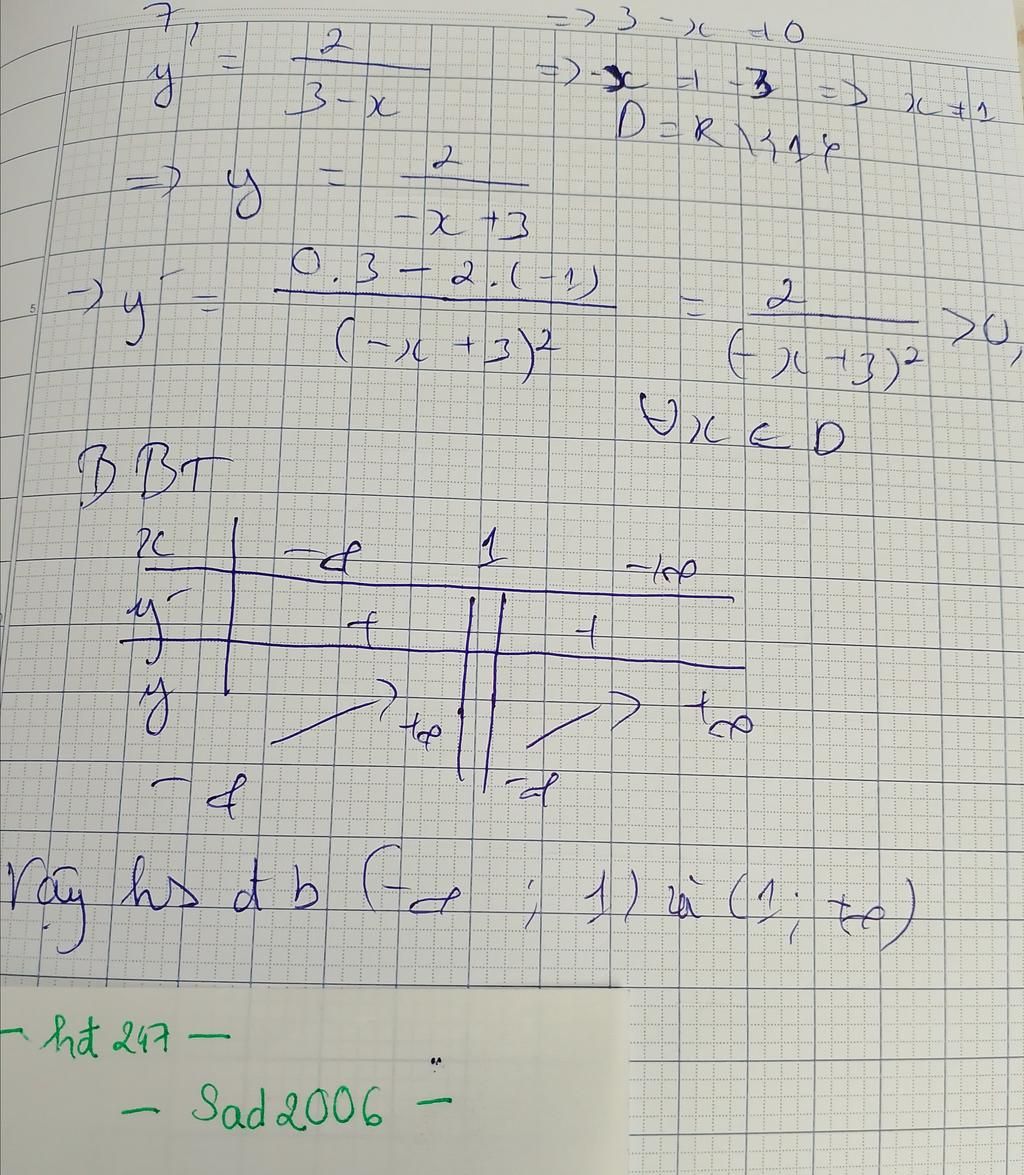 7,
y = 2/(3-x) => 3 - x ≠ 0
=> -x ≠ -3 => x ≠ 1
D = R \ {1}
=> y = 2/(-x+3)
=> y' = (0.3 - 2.(-1))/(-x+3)² = 2/(-x+3)² > 0,
∀x ∈ D
BBT
x -∞ 1 +∞
y' + || +
y -∞ ↗ +∞ || -∞ ↗ +∞
Vậy hs đb (-∞ ; 1) và (1; +∞)
- hđ 247 -
- Sad2006 -